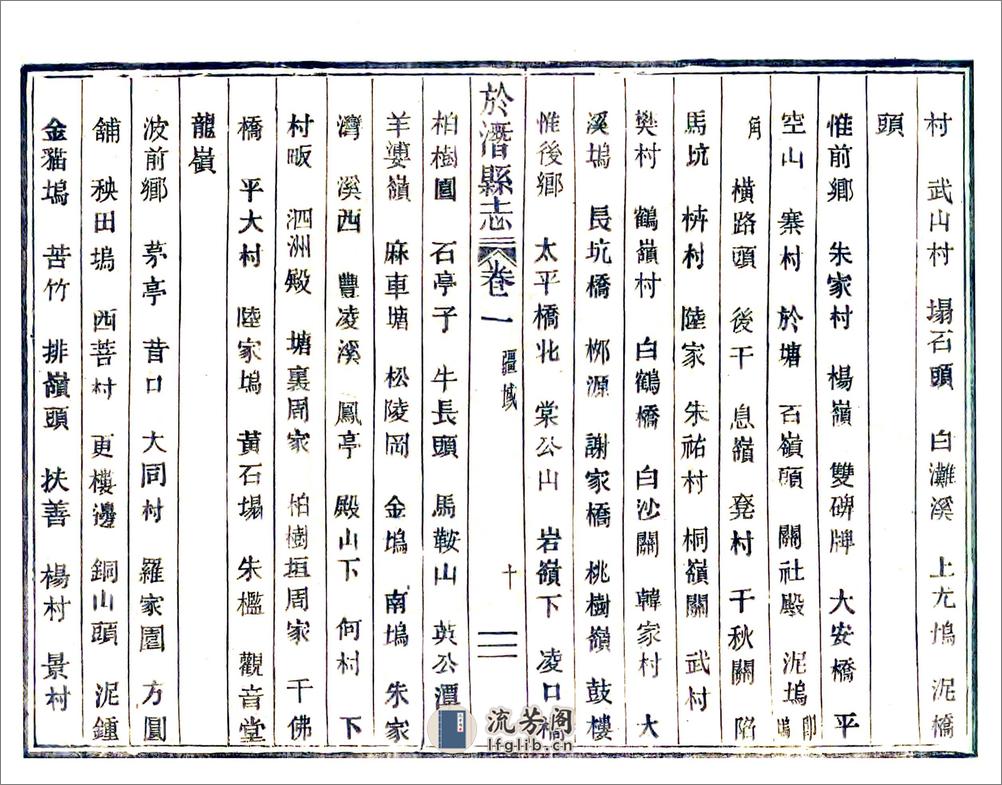 村 武山村 塌石頭 白灘溪 上尤塢 泥橋
頭
惟前鄉 朱家村 楊嶺 雙碑牌 大安橋 平
空山 寨村 於塘 百嶺頭 關社殿 泥塢 即鳴
角 橫路頭 後干 息嶺 堯村 千秋關 陷
馬坑 枿村 陸家 朱祐村 桐嶺關 武村
樊村 鶴嶺村 白鶴橋 白沙關 韓家村 大
溪塢 長坑橋 桞源 謝家橋 桃樹嶺 鼓樓
惟後鄉 太平橋北 棠公山 岩嶺下 凌口橋
於潛縣志 卷一 疆域 十三
柏樹園 石亭子 牛長頭 馬鞍山 英公潭
羊婆嶺 麻車塘 松陵岡 金塢 南塢 朱家
灣 溪西 豐凌溪 鳳亭 殿山下 何村 下
村畈 泗洲殿 塘裏周家 柏樹垣周家 千佛
橋 平大村 陸家塢 黃石塌 朱檻 觀音堂
龍嶺
波前鄉 茅亭 昔口 大同村 羅家園 方圓
舖 秧田塢 西菩村 更樓邊 銅山頭 泥鍾
金貓塢 苦竹 排嶺頭 扶善 楊村 景村
流芳阁
lfglib.cn